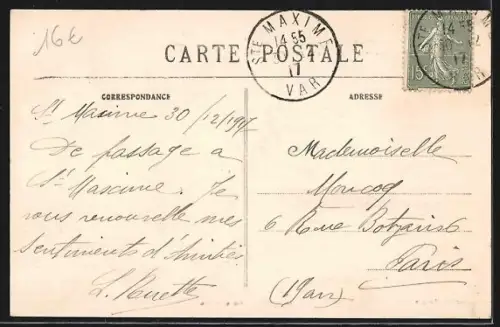 16€
CARTE POSTALE
STE MAXIME
14 55
17
VAR
15
CORRESPONDANCE
ADRESSE
St Maxime 30/12/1917
De passage a
St Maxime. Je
vous renouvelle mes
Sentiments d'Amitiés
Mademoiselle
Moucoq
6 Rue Botzaris 6
Paris